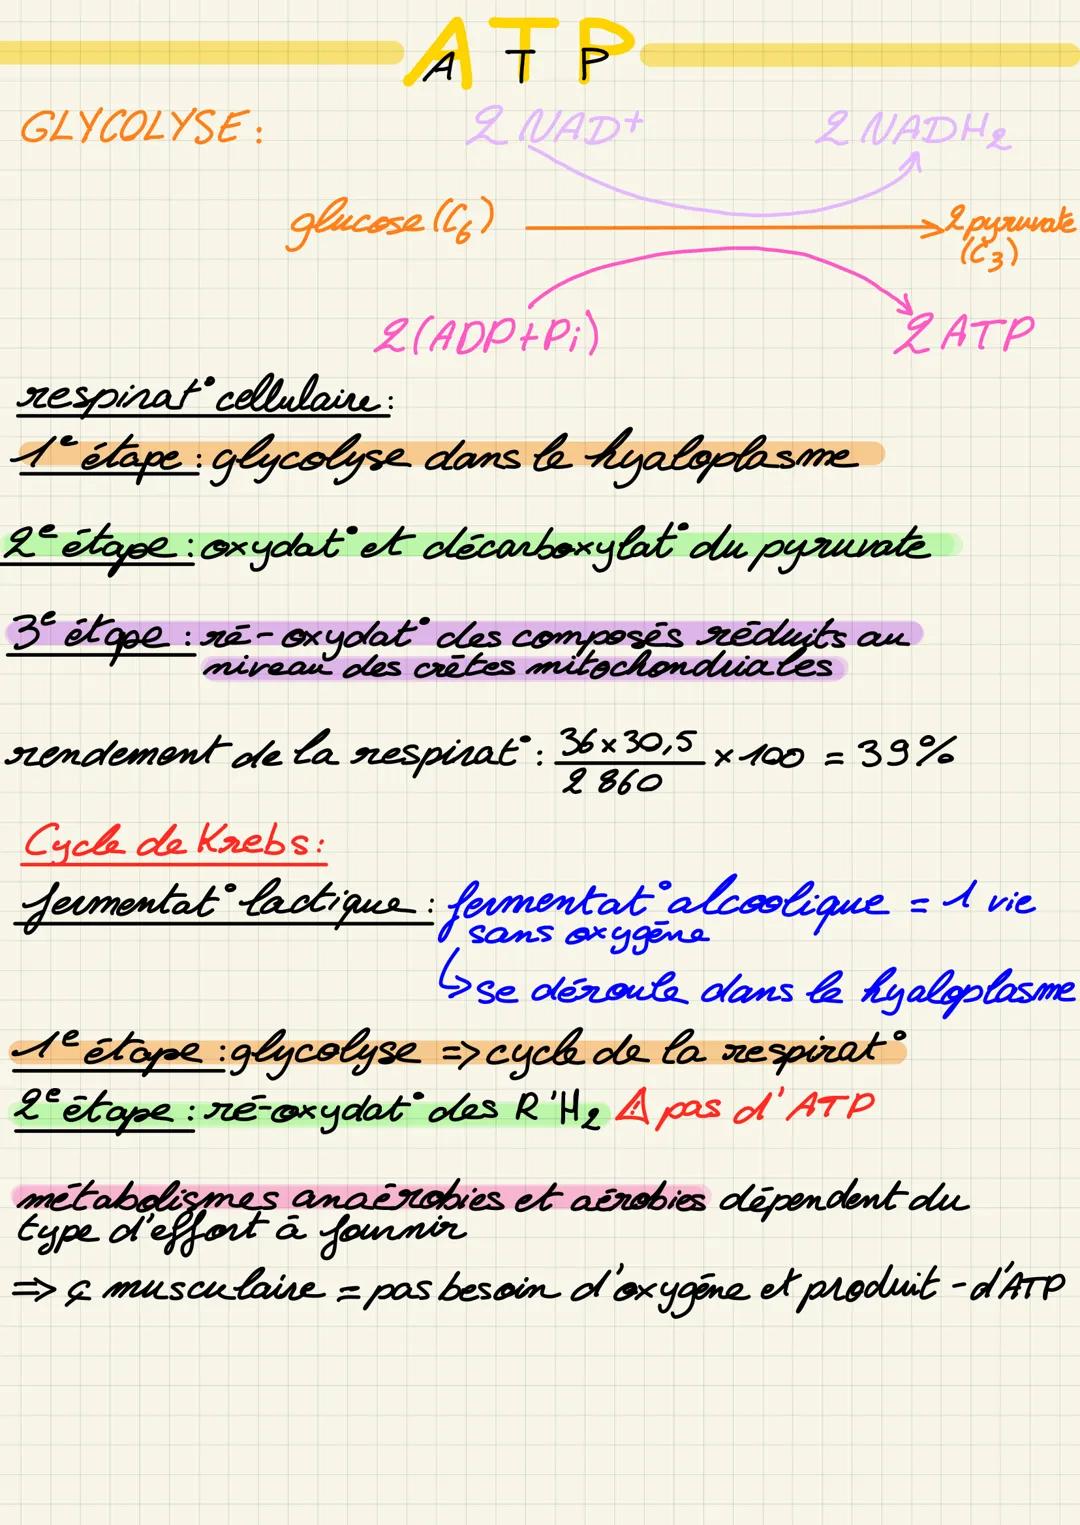 ATP
A T P
GLYCOLYSE :
2 NAD+ 2 NADH₂
glucose (C₆) → 2 pyruvate
(C₃)
2(ADP+Pi) 2 ATP
respirat° cellulaire :
1e étape : glycolyse dans le hyaloplasme
2e étape : oxydat° et décarboxylat° du pyruvate
3e étape : ré-oxydat° des composés réduits au
niveau des crêtes mitochondriales
rendement de la respirat° : 36×30,5 / 2 860 ×100 = 39%
Cycle de Krebs :
fermentat° lactique : fermentat° alcoolique = 1 vie
sans oxygène
↳ se déroule dans le hyaloplasme
1e étape : glycolyse => cycle de la respirat°
2e étape : ré-oxydat° des R'H₂ ⚠ pas d'ATP
métabolismes anaérobies et aérobies dépendent du
type d'effort à fournir
=> ç musculaire = pas besoin d'oxygène et produit - d'ATP